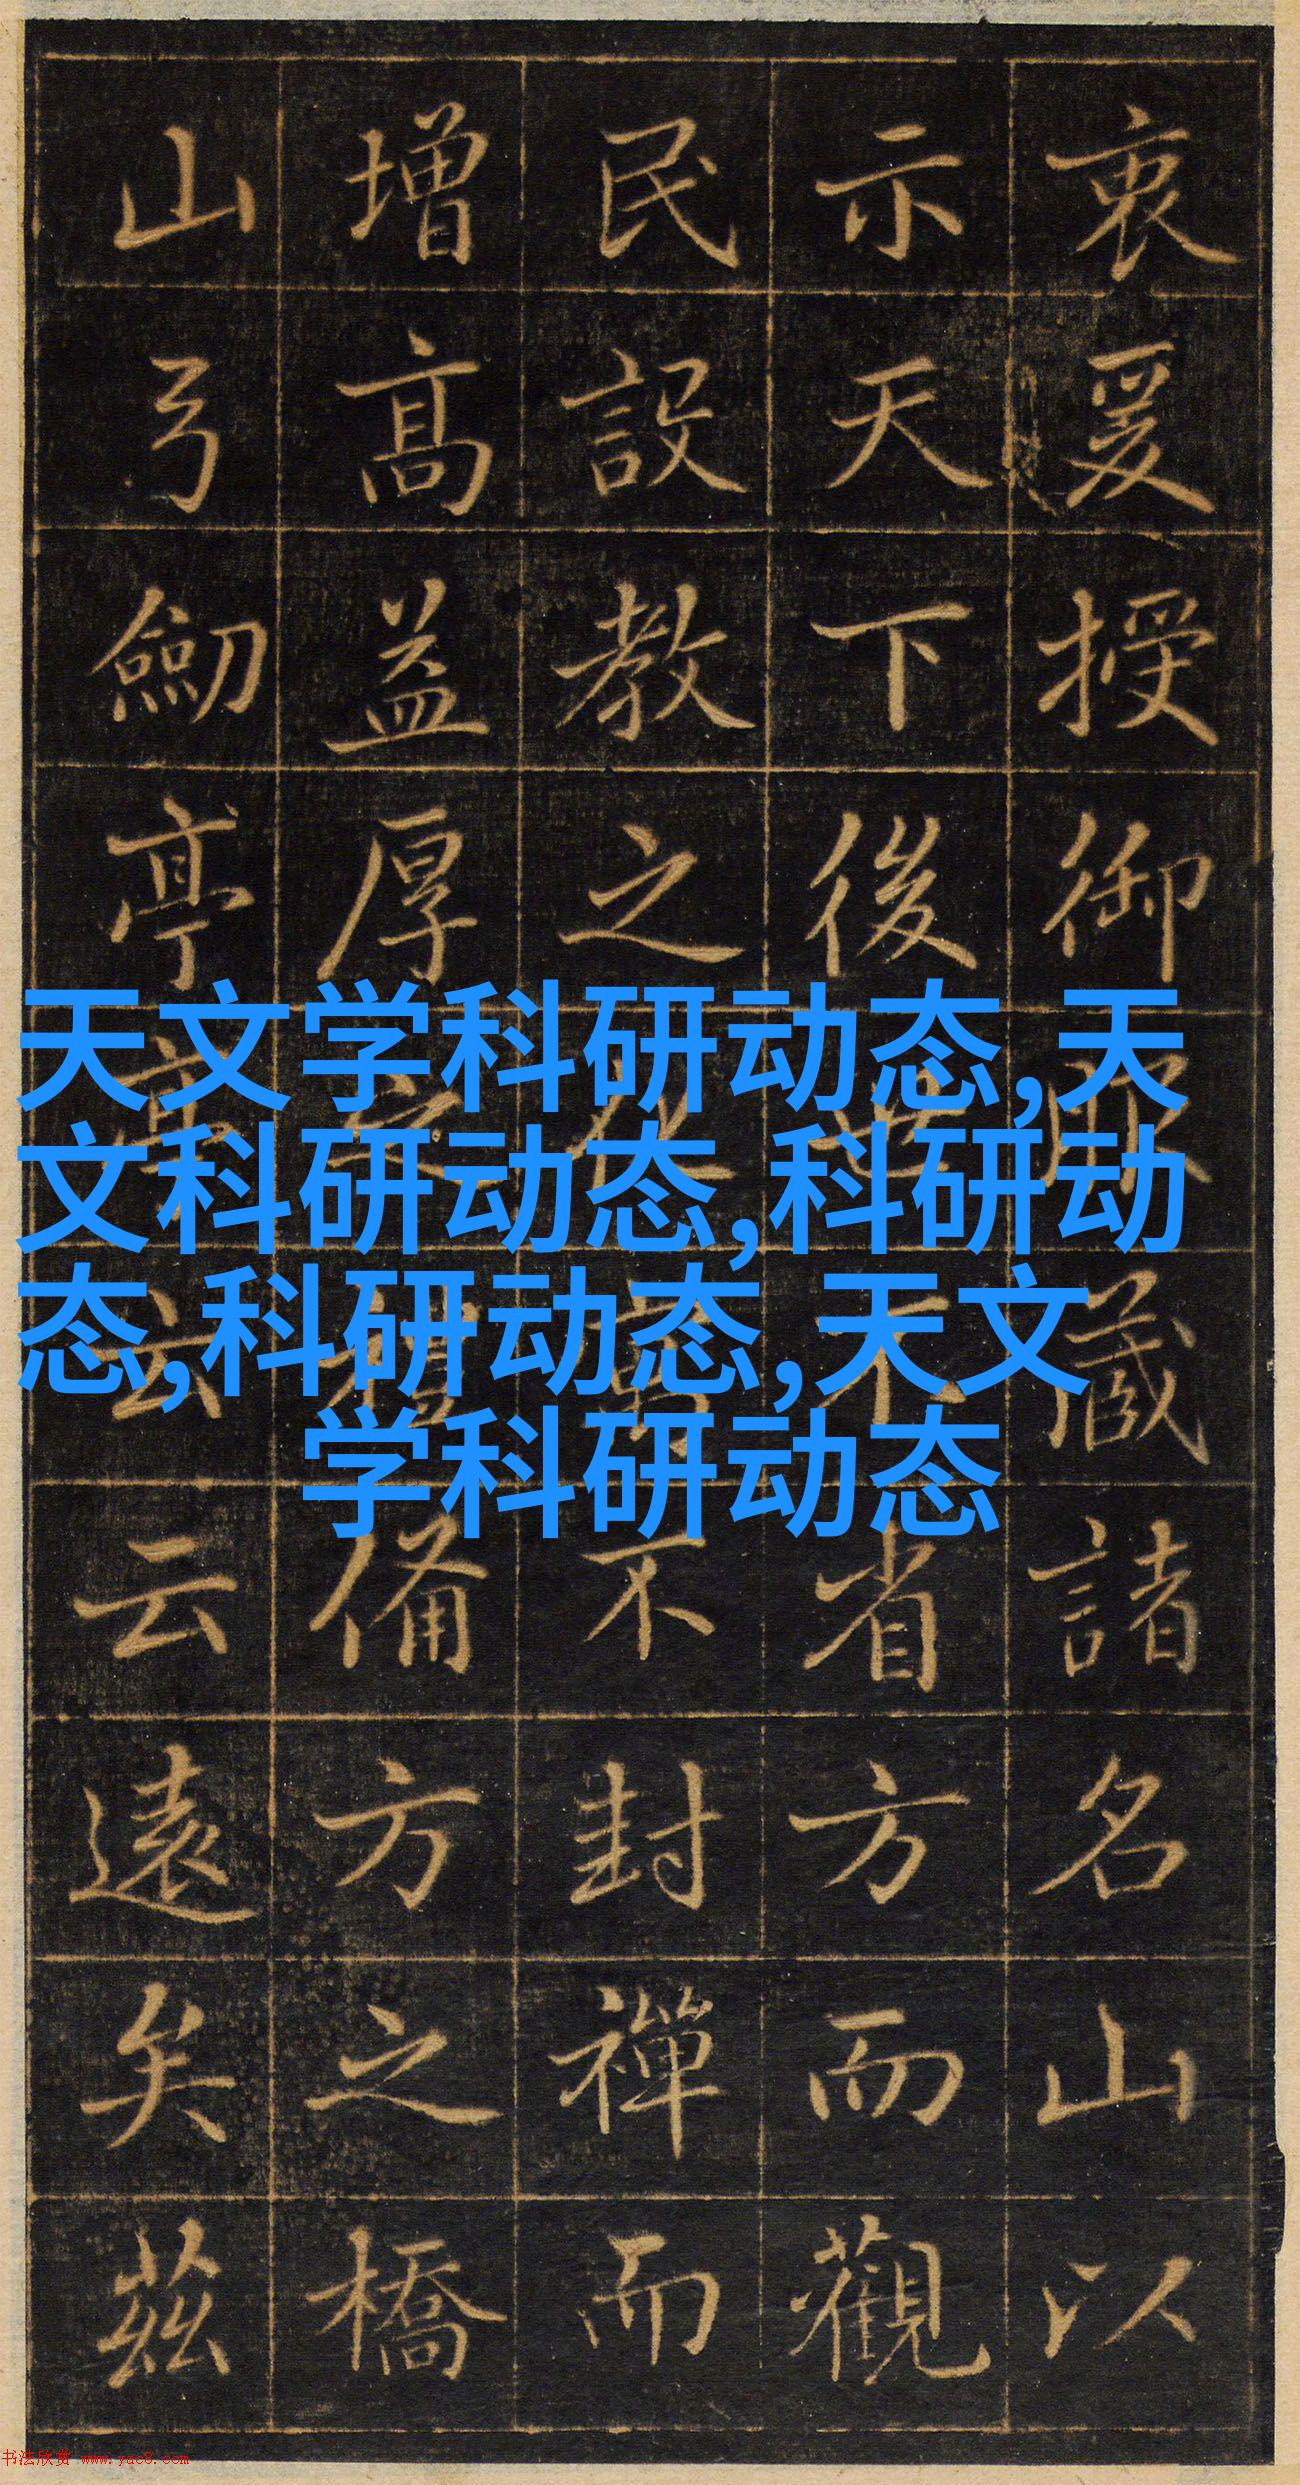 衷爰授御藏諸名山以
示天下後世不省方而觀
民設教之不封禪而
增高益厚之備方之橋
山弓劒亭亭云云遠矣茲
天文学科研动态,天
文科研动态,科研动
态,科研动态,天文
学科研动态
书法欣赏 www.yac8.com